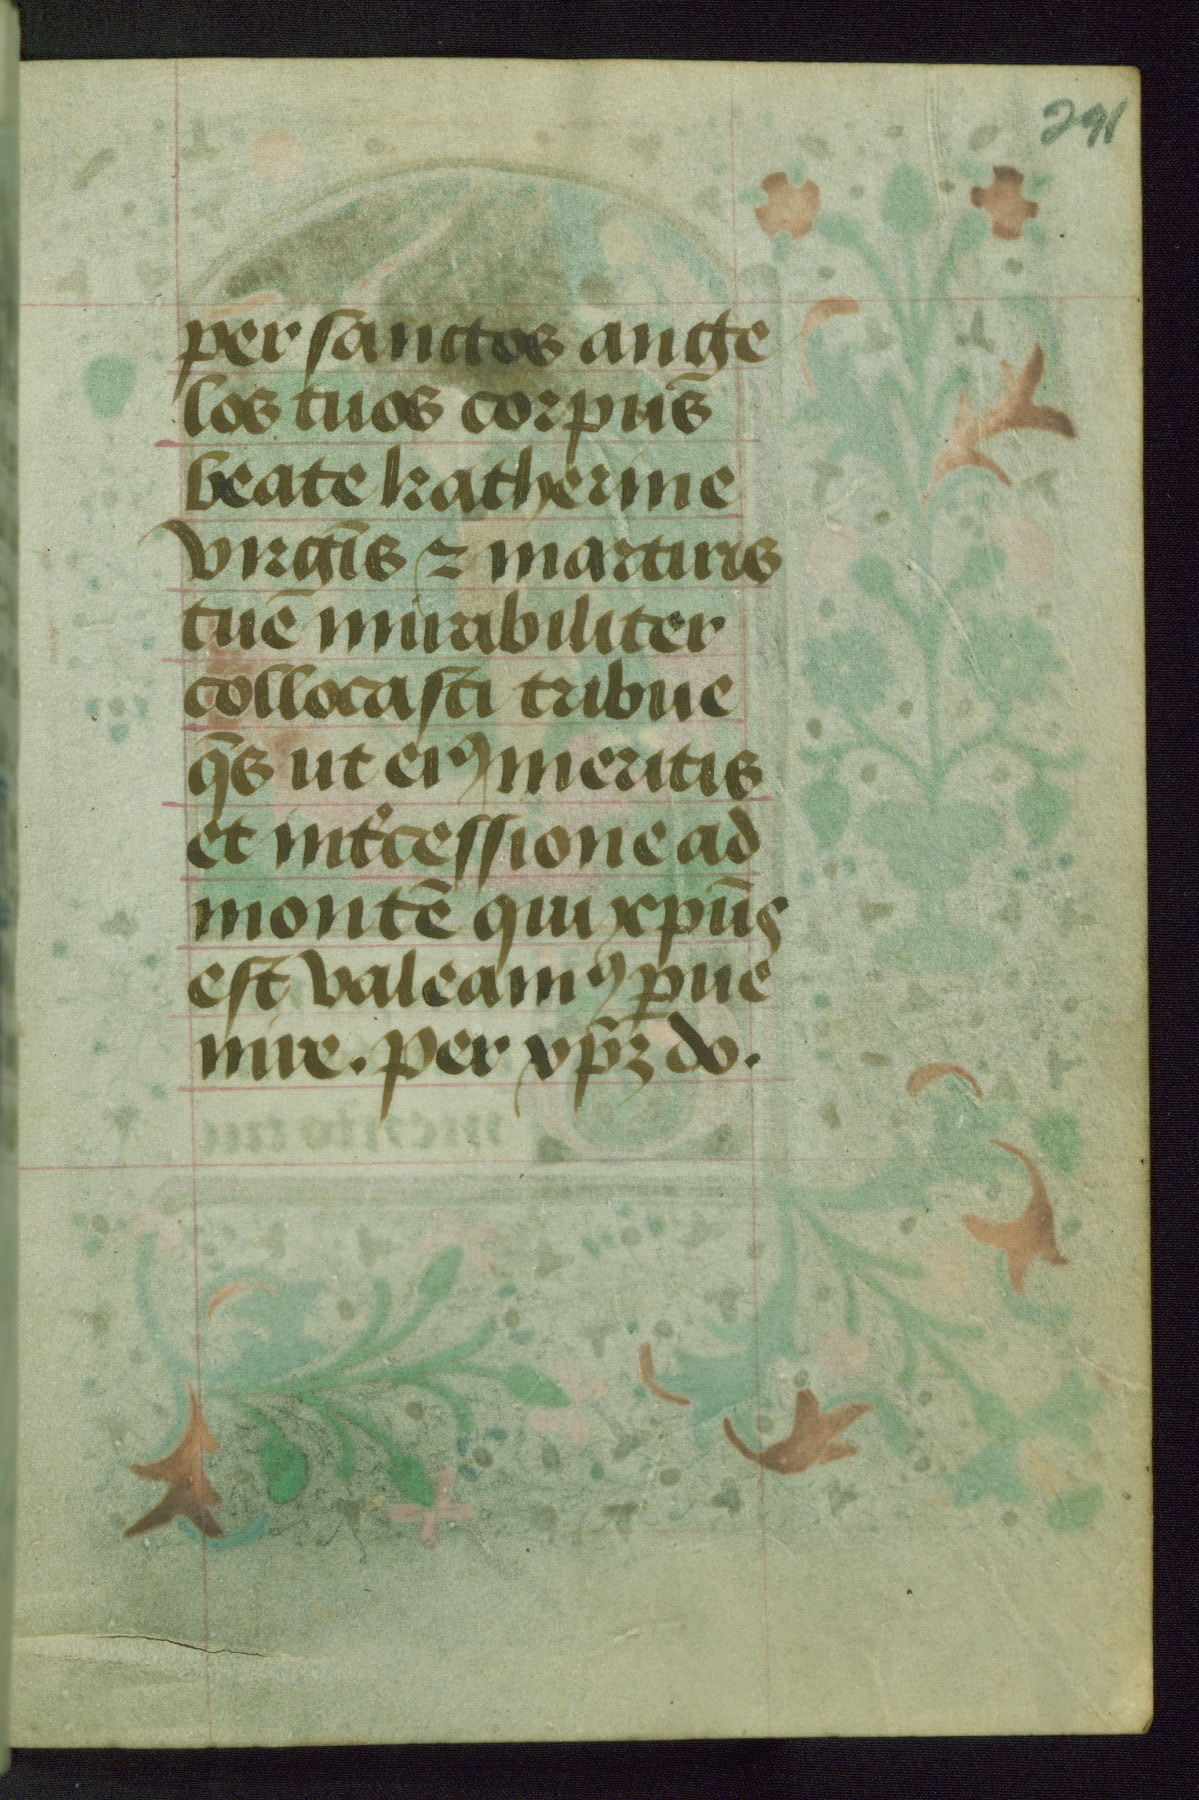 291
per sanctos ange
los tuos corpus̄
beate katherine
virgīs ⁊ martiris
tuē mirabiliter
collocasti tribue
q̄s ut eiꝰ meritis
et int̾cessione ad
montē qui xpūs
est valeamꝰ ꝑue
nire. per xp̄ꝫ do.